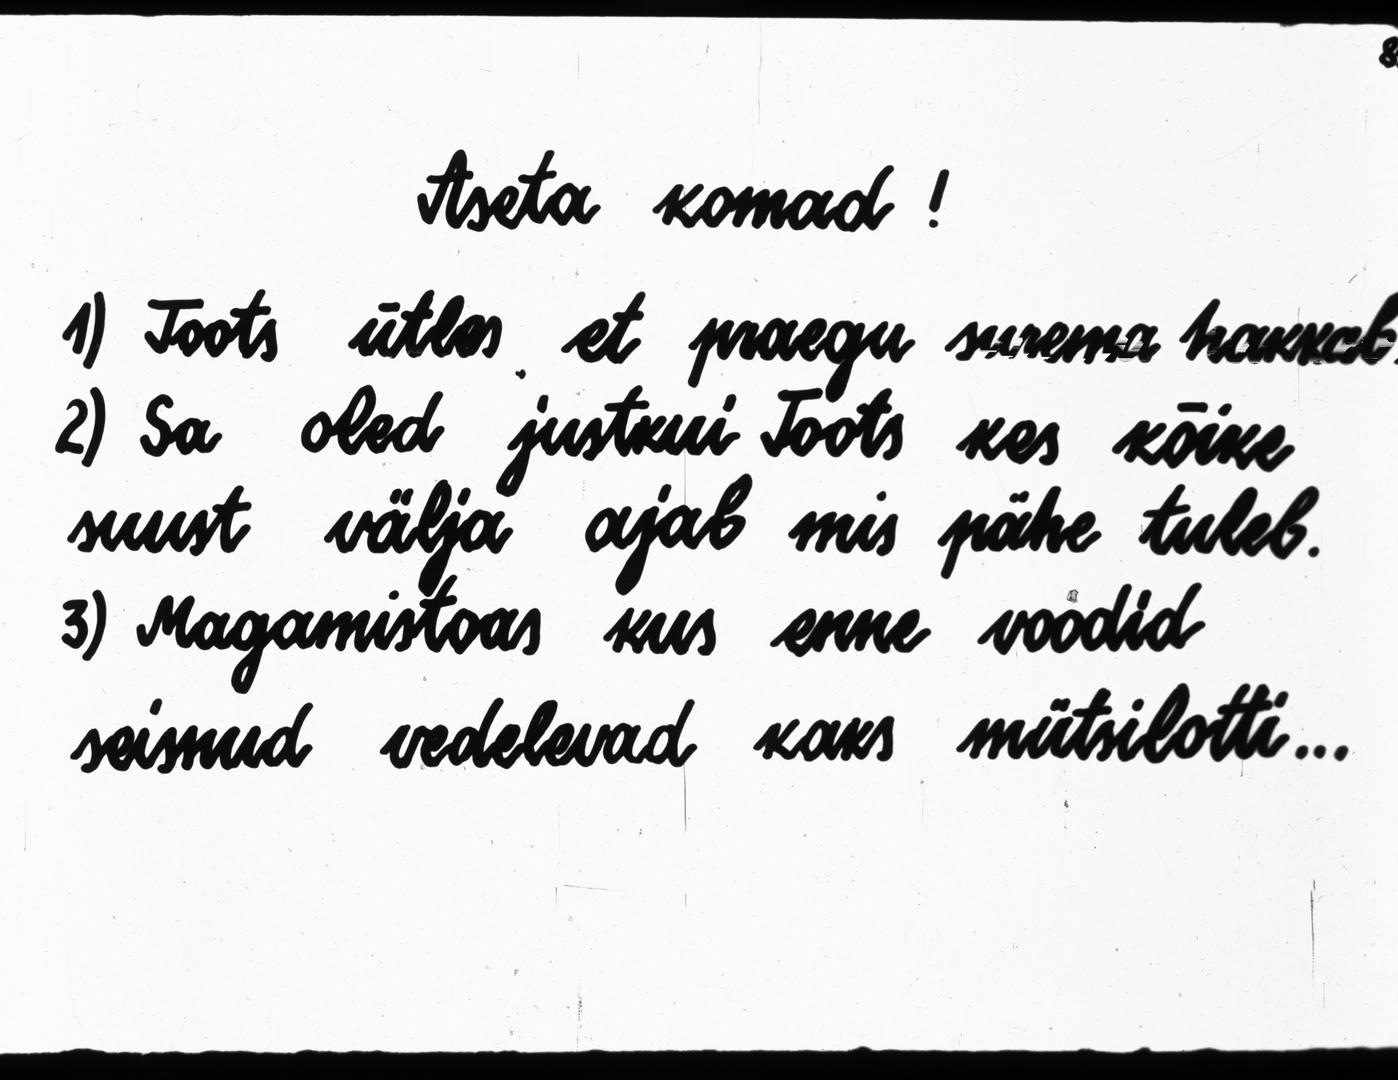 Aseta komad!
1) Toots ütles et praegu surema hakkab.
2) Sa oled justkui Toots kes kõike
suust välja ajab mis pähe tuleb.
3) Magamistoas kus enne voodid
seisnud vedelevad kaks mütsilotti...